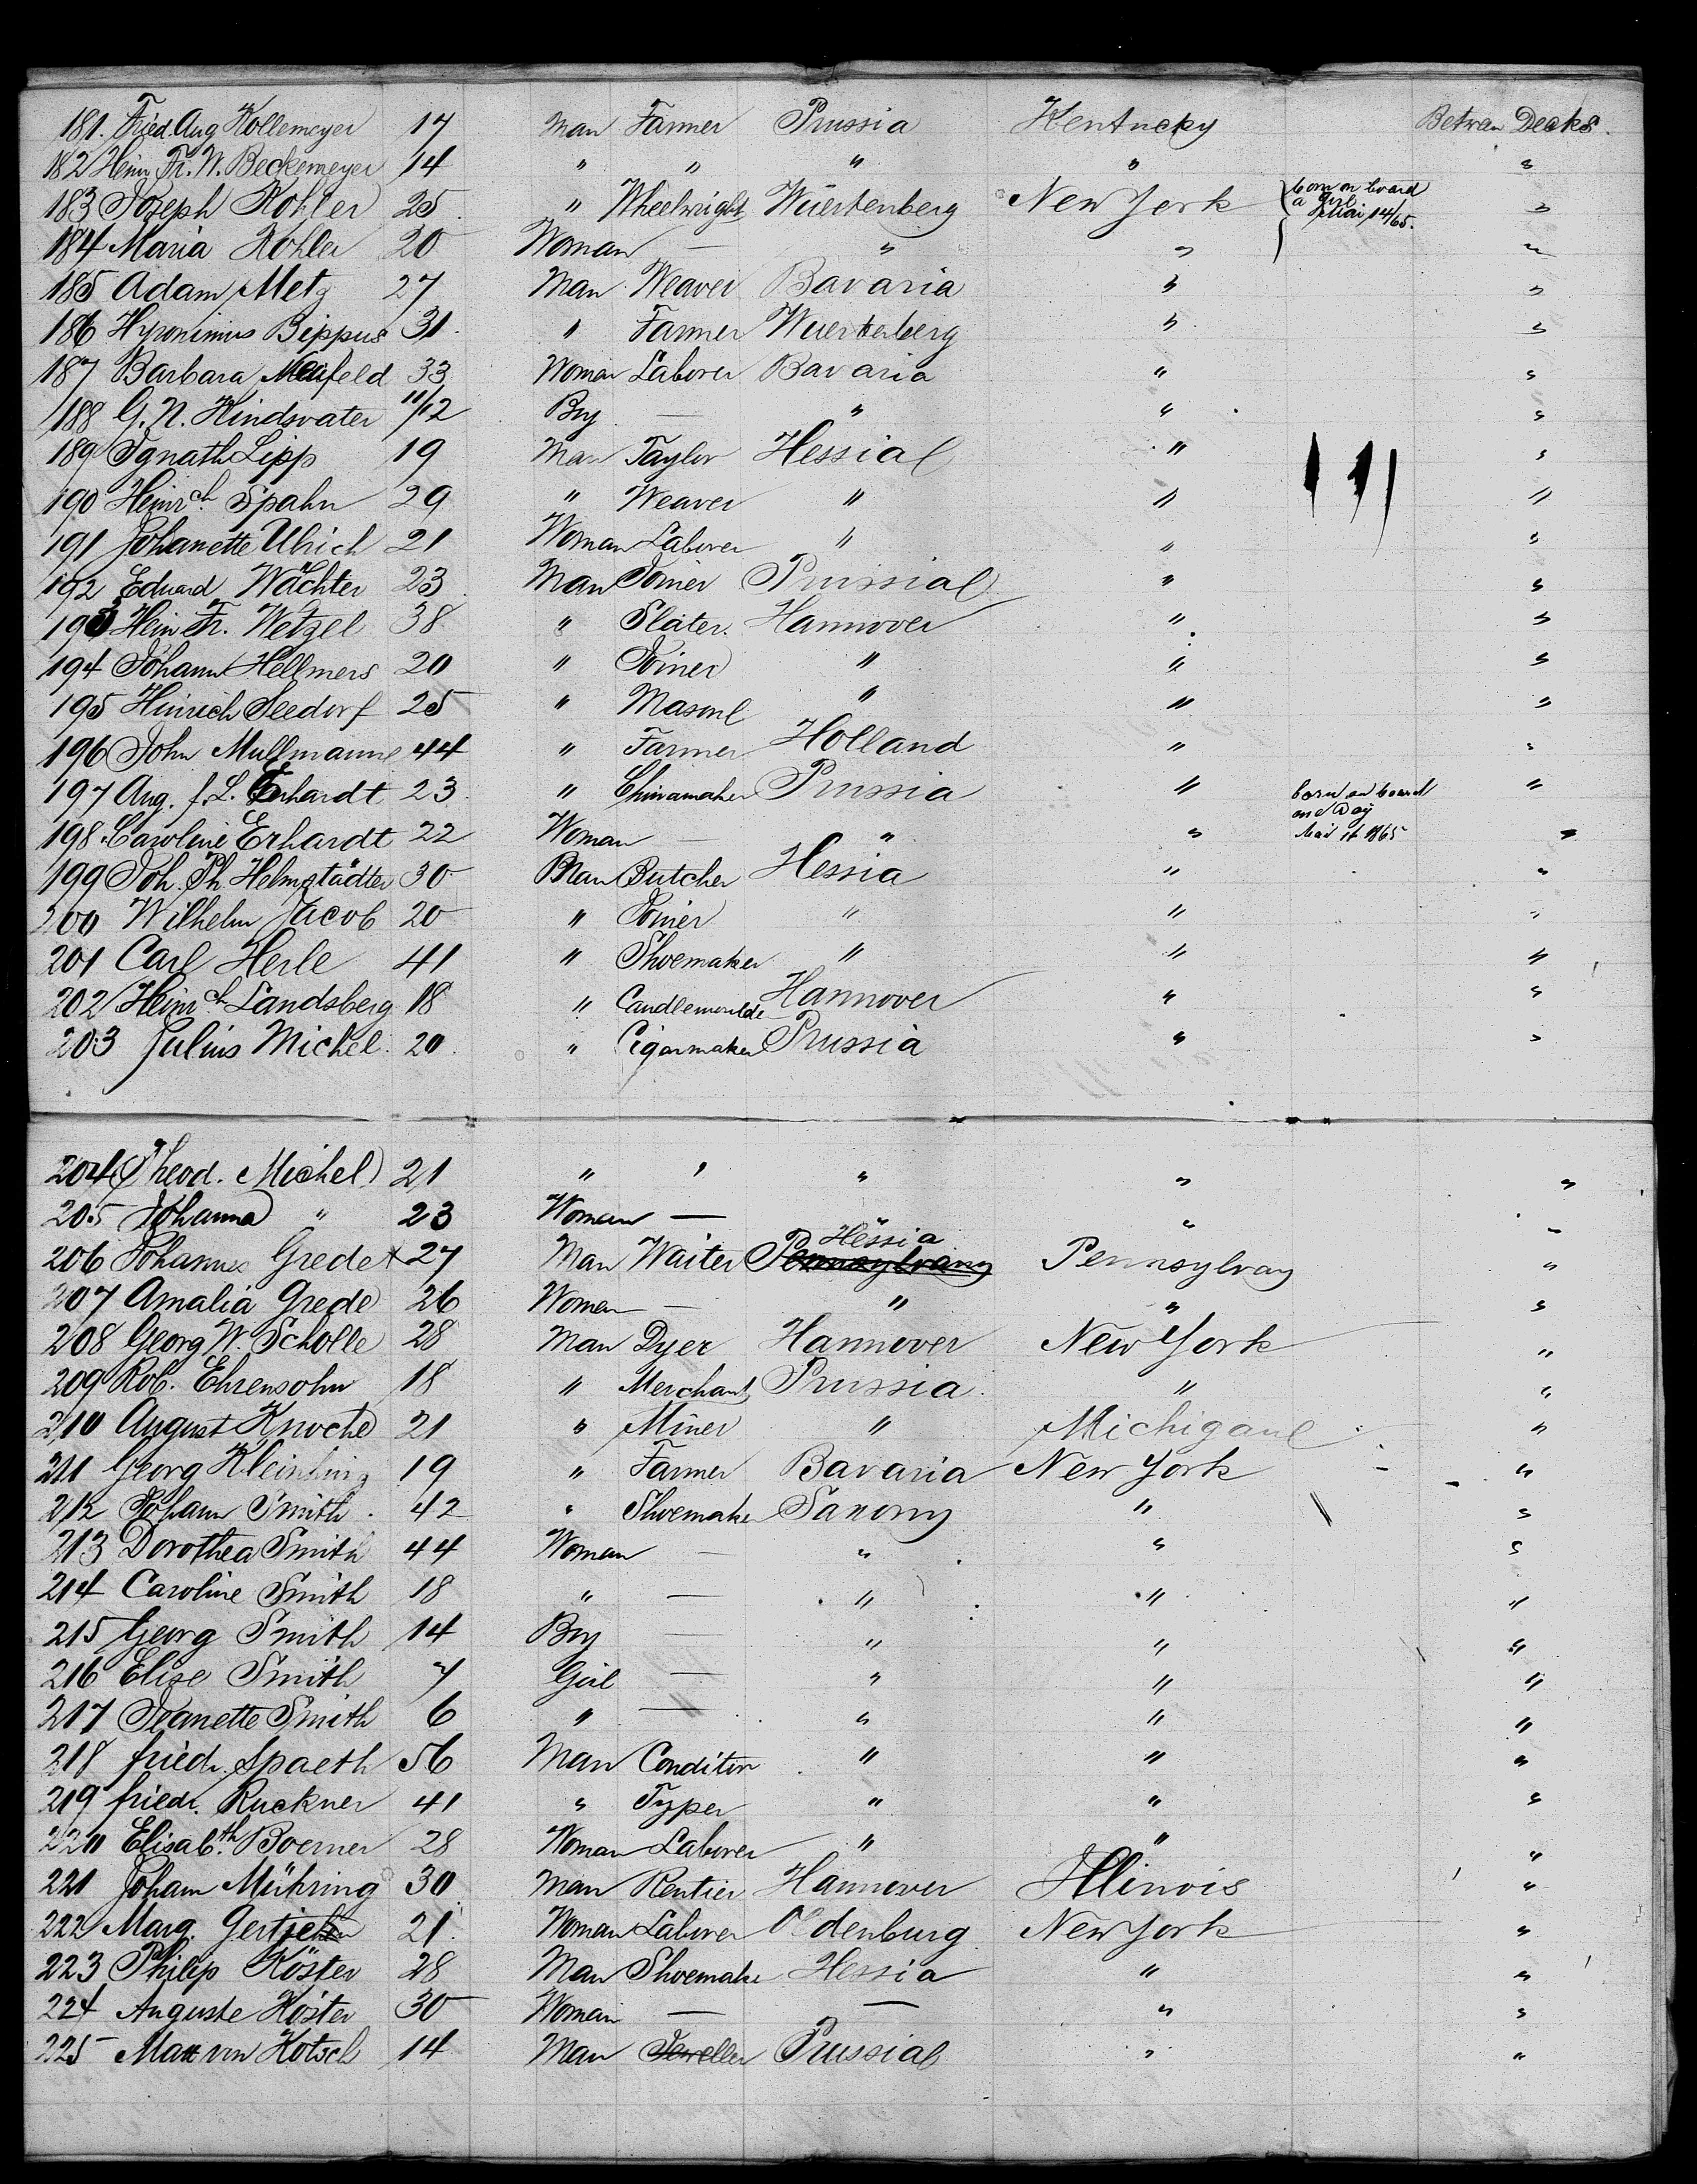 181. Fried. Aug Kollemeyer 17 Man Farmer Prussia Kentucky Betwen Decks.
182 Heinr Fr. W. Beckemeyer 14 " " " " "
183 Joseph Kohler 25 " Wheelwright Wuertenberg New York born on board a Girl Mai 14/65. "
184 Maria Kohler 20 Woman — " " "
185 Adam Metz 27 Man Weaver Bavaria " "
186 Hyronimus Bippus 31. " Farmer Wuertenberg " "
187 Barbara 33 Woman Laborer Bavaria " "
188 G. N. Kindsvater 11/12 Boy — " " "
189 Ignath Lipp 19 Man Taylor Hessia " "
190 Heinrch. Spahn 29 " Weaver " " "
191 Johanette Ulrich 21 Woman Laborer " " "
192 Eduard Wächter 23 Man Joiner Prussia " "
193 Hein Fr. Wetzel 38 " Slater. Hannover " "
194 Johann Hellmers 20 " Joiner " " "
195 Hinrich Seedorf 25 " Mason " " "
196 John Mullmann 44 " Farmer Holland " "
197 Aug. f. L. Erhardt 23. " Chinamaker Prussia " born on board one Boy Mai 1865 "
198. Caroline Erhardt 22 Woman — " " "
199 Joh. Ph. Helmstädter 30 Man Butcher Hessia " "
200 Wilhelm Jacob 20 " Joiner " " "
201 Carl Herle 41 " Shoemaker " " "
202 Heinrch Landsberg 18 " Candlemoulde Hannover " "
203 Julius Michel. 20. " Cigarmaker Prussia " "
204 Theod. Michel 21 " " " " "
205 Johanna " 23 Woman — " " "
206 Johannes Grede x 27 Man Waiter Pennsylvany Hessia Pennsylvany "
207 Amalia Grede 26 Women — " " "
208 Georg W. Scholle 28 Man Dyer Hannover New York "
209 Rob. Ehrensohn 18 " Merchant Prussia. " "
210 August Knoche 21 " Miner " Michigan "
211 Georg 19 " Farmer Bavaria New York "
212 Johann Smith. 42 " Shoemaker Saxony " "
213 Dorothea Smith 44 Woman — " " "
214 Caroline Smith 18 " — " " "
215 Georg Smith 14 Boy — " " "
216 Elise Smith 7 Girl — " " "
217 Jeanette Smith 6 " — " " "
218 friedr. Spaeth 56 Man Conditor " " "
219 friedr. Ruckner 41 " Typer " " "
220 Elisabth. Boerner 28 Woman Laborer " " "
221 Johann Mühring 30 Man Rentier Hannover Illinois "
222 Marg. 21. Woman Laborer Oldenburg New York "
223 Philip Köster 28 Man Shoemake Hessia " "
224 Auguste Köster 30 Woman — — " "
225 Max von Kotsch 14 Man Jeweller Prussia " "